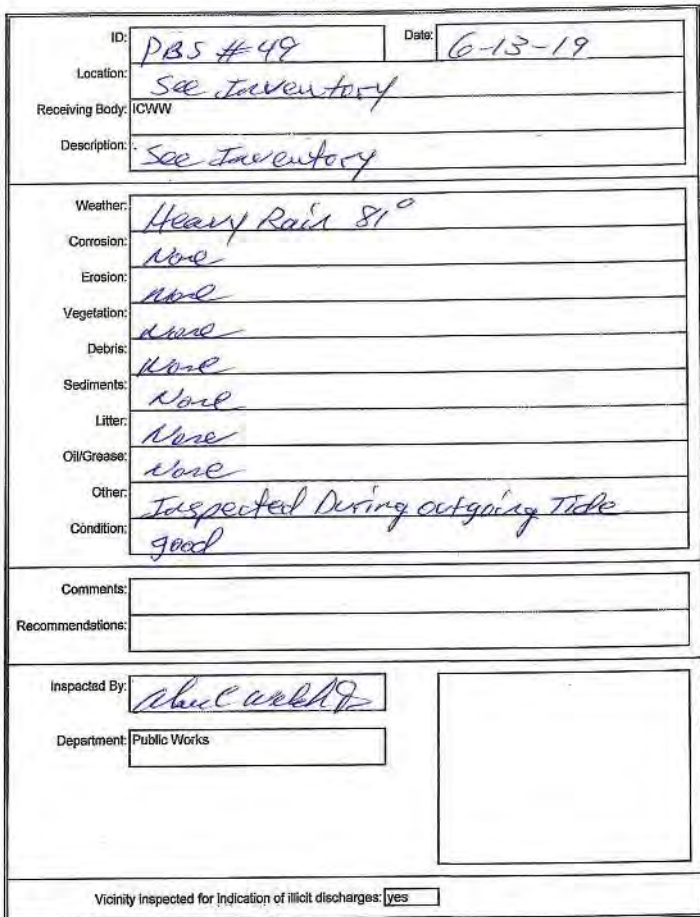 ID: PBS #49 Date: 6-13-19
Location: See Inventory
Receiving Body: ICWW
Description: . See Inventory
Weather: Heavy Rain 81°
Corrosion: None
Erosion: None
Vegetation: None
Debris: None
Sediments: None
Litter: None
Oil/Grease: None
Other: Inspected During outgoing Tide
Condition: good
Comments:
Recommendations:
Inspected By:
Department: Public Works
Vicinity inspected for indication of illicit discharges: yes